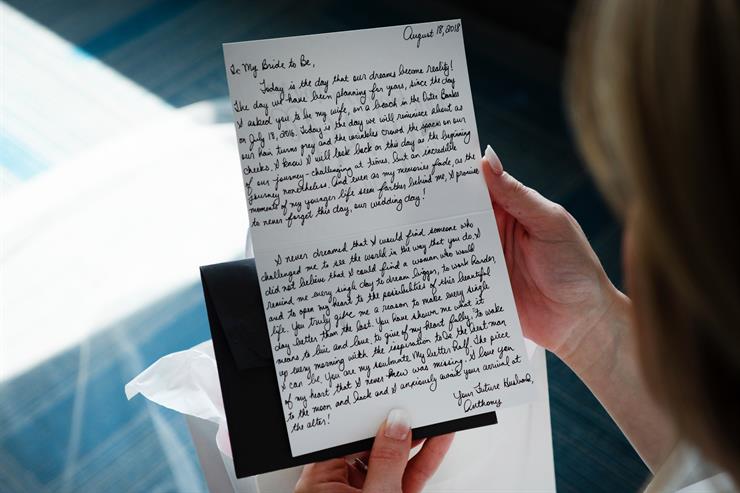 August 18, 2018
To My Bride to Be,
Today is the day that our dreams become reality!
The day we have been planning for years, since the day
I asked you to be my wife, on a beach in the Outer Banks
on July 18, 2016. Today is the day we will reminisce about as
our hair turns grey and the wrinkles crowd the spaces on our
cheeks. I know I will look back on this day as the beginning
of our journey - challenging at times, but an incredible
journey nonetheless. And even as my memories fade, as the
moments of my younger life seem farther behind me, I promise
to never forget this day, our wedding day!
I never dreamed that I would find someone who
challenged me to see the world in the way that you do. I
did not believe that I could find a woman who would
remind me every single day to dream bigger, to work harder
and to open my heart to the possibilities of this beautiful
life. You truly give me a reason to make every single
day better than the last. You have shown me what it
means to live and love, to give of my heart fully, to wake
up every morning with the inspiration to be the best man
I can be. You are my soulmate. My better half. The piece
of my heart that I never knew was missing. I love you
to the moon and back and I anxiously await your arrival at
the alter!
Your Future Husband,
Anthony